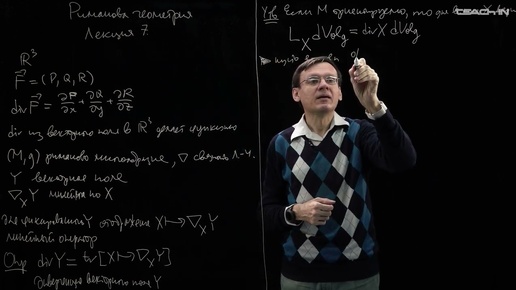 Риманова геометрия
Лекция 7
ℝ³
F⃗ = (P, Q, R)
div F⃗ = ∂P/∂x + ∂Q/∂y + ∂R/∂z
div из векторного поля в ℝ³ делает функцию
(M, g) риманово многообразие, ∇ связность Л-Ч.
Y векторное поле
∇_X Y линейна по X
Для фиксированного Y отображение X ↦ ∇_X Y
линейный оператор
Опр div Y = tr [X ↦ ∇_X Y]
дивергенция векторного поля Y
Утв Если M ориентируемо, то
L_X dVol_g = div X dVol_g
▶ пусть
TEACH-IN